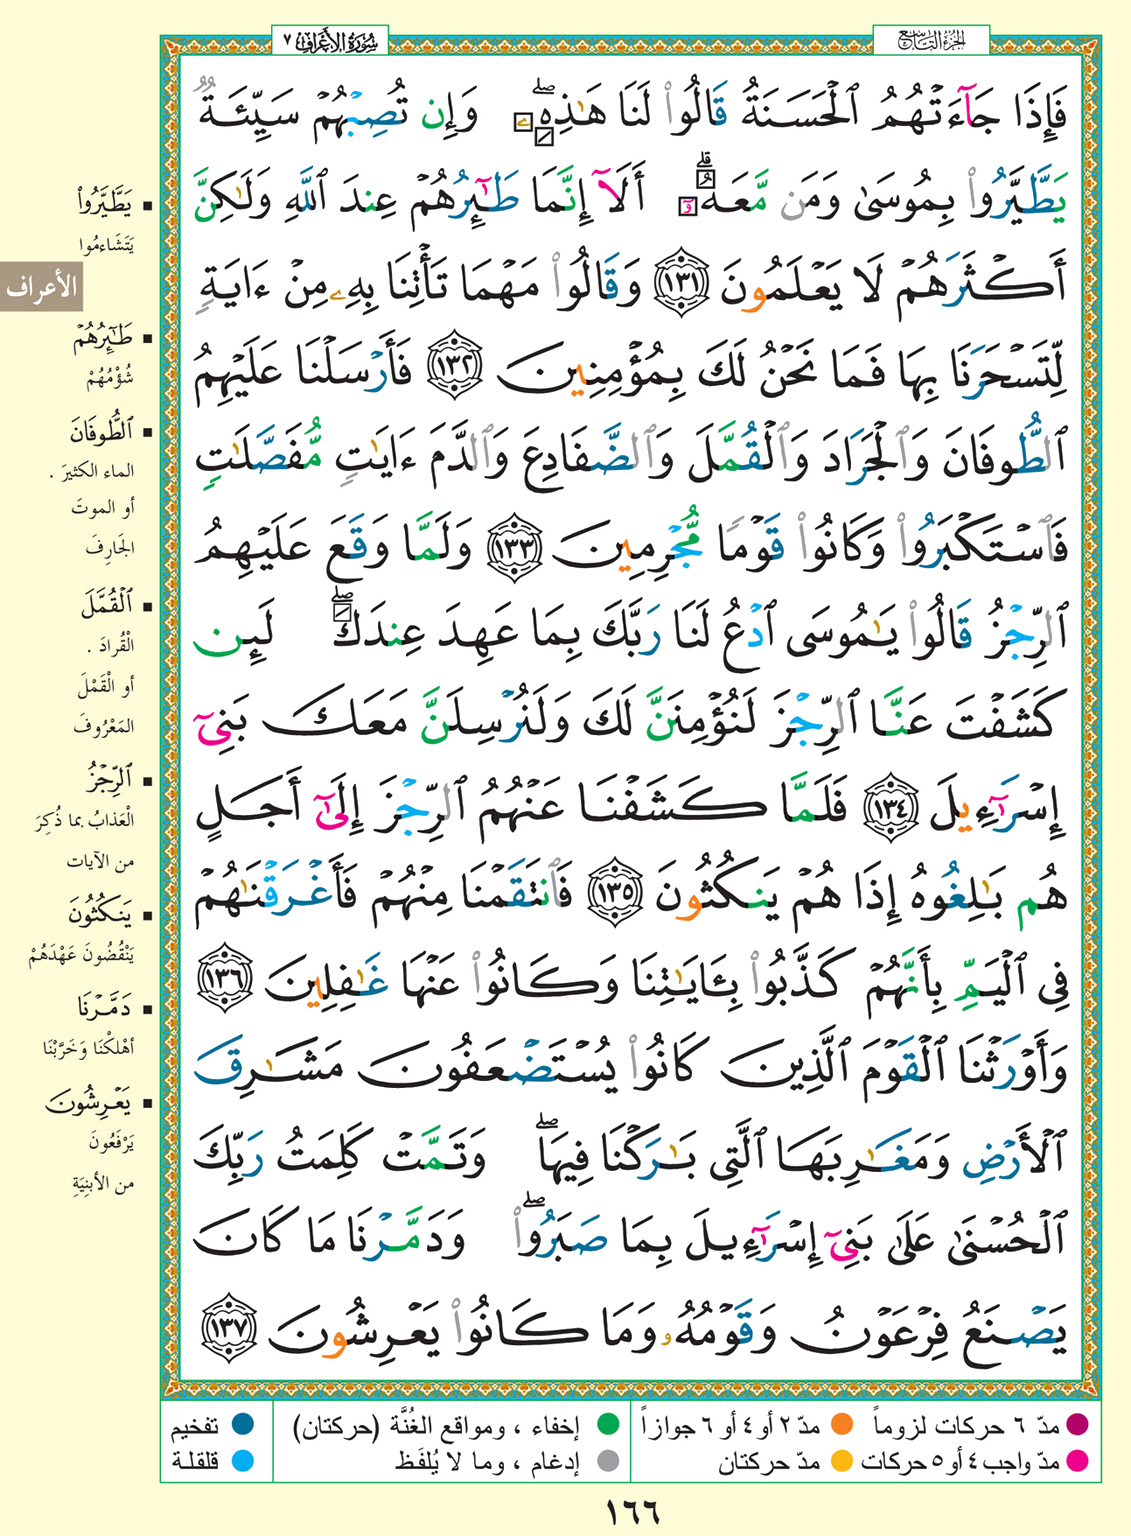 الجزء التاسع
سورة الأعراف ٧
فَإِذَا جَآءَتْهُمُ ٱلْحَسَنَةُ قَالُوا۟ لَنَا هَٰذِهِۦ ۖ وَإِن تُصِبْهُمْ سَيِّئَةٌ
يَطَّيَّرُوا۟ بِمُوسَىٰ وَمَن مَّعَهُۥٓ ۗ أَلَآ إِنَّمَا طَٰٓئِرُهُمْ عِندَ ٱللَّهِ وَلَٰكِنَّ
أَكْثَرَهُمْ لَا يَعْلَمُونَ ١٣١ وَقَالُوا۟ مَهْمَا تَأْتِنَا بِهِۦ مِنْ ءَايَةٍ
لِّتَسْحَرَنَا بِهَا فَمَا نَحْنُ لَكَ بِمُؤْمِنِينَ ١٣٢ فَأَرْسَلْنَا عَلَيْهِمُ
ٱلطُّوفَانَ وَٱلْجَرَادَ وَٱلْقُمَّلَ وَٱلضَّفَادِعَ وَٱلدَّمَ ءَايَٰتٍ مُّفَصَّلَٰتٍ
فَٱسْتَكْبَرُوا۟ وَكَانُوا۟ قَوْمًا مُّجْرِمِينَ ١٣٣ وَلَمَّا وَقَعَ عَلَيْهِمُ
ٱلرِّجْزُ قَالُوا۟ يَٰمُوسَى ٱدْعُ لَنَا رَبَّكَ بِمَا عَهِدَ عِندَكَ ۖ لَئِن
كَشَفْتَ عَنَّا ٱلرِّجْزَ لَنُؤْمِنَنَّ لَكَ وَلَنُرْسِلَنَّ مَعَكَ بَنِىٓ
إِسْرَٰٓءِيلَ ١٣٤ فَلَمَّا كَشَفْنَا عَنْهُمُ ٱلرِّجْزَ إِلَىٰٓ أَجَلٍ
هُم بَٰلِغُوهُ إِذَا هُمْ يَنكُثُونَ ١٣٥ فَٱنتَقَمْنَا مِنْهُمْ فَأَغْرَقْنَٰهُمْ
فِى ٱلْيَمِّ بِأَنَّهُمْ كَذَّبُوا۟ بِـَٔايَٰتِنَا وَكَانُوا۟ عَنْهَا غَٰفِلِينَ ١٣٦
وَأَوْرَثْنَا ٱلْقَوْمَ ٱلَّذِينَ كَانُوا۟ يُسْتَضْعَفُونَ مَشَٰرِقَ
ٱلْأَرْضِ وَمَغَٰرِبَهَا ٱلَّتِى بَٰرَكْنَا فِيهَا ۖ وَتَمَّتْ كَلِمَتُ رَبِّكَ
ٱلْحُسْنَىٰ عَلَىٰ بَنِىٓ إِسْرَٰٓءِيلَ بِمَا صَبَرُوا۟ ۖ وَدَمَّرْنَا مَا كَانَ
يَصْنَعُ فِرْعَوْنُ وَقَوْمُهُۥ وَمَا كَانُوا۟ يَعْرِشُونَ ١٣٧
يَطَّيَّرُوا۟
يَتَشَاءمُوا
الأعراف
طَٰٓئِرُهُمْ
شُؤْمُهُمْ
ٱلطُّوفَانَ
الماء الكثيرَ .
أو الموتَ
الجَارِفَ
ٱلْقُمَّلَ
الْقُرادَ .
أو الْقَمْلَ
المَعْرُوفَ
ٱلرِّجْزُ
الْعَذابُ بما ذُكِرَ
من الآيات
يَنكُثُونَ
يَنْقُضُونَ عَهْدَهُمْ
دَمَّرْنَا
أهْلكْنَا وَخَرَّبْنَا
يَعْرِشُونَ
يَرْفَعُونَ
من الأبنِيَةِ
مدّ ٦ حركات لزوماً
مدّ ٢ أو ٤ أو ٦ جوازاً
إخفاء ، ومواقع الغُنَّة (حركتان)
تفخيم
مدّ واجب ٤ أو ٥ حركات
مدّ حركتان
إدغام ، وما لا يُلفَظ
قلقلة
١٦٦